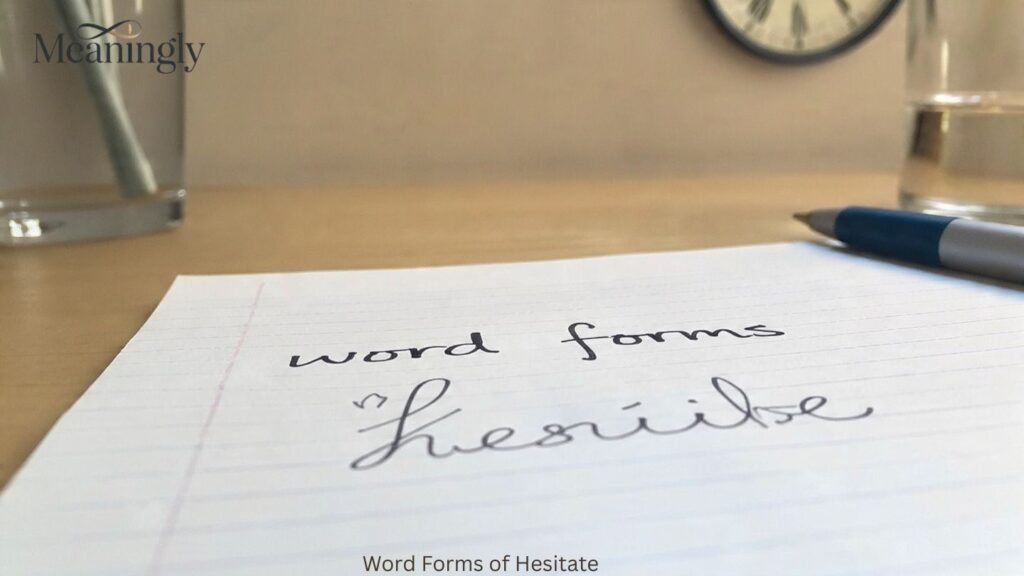 Meaningly
word forms
Word Forms of Hesitate